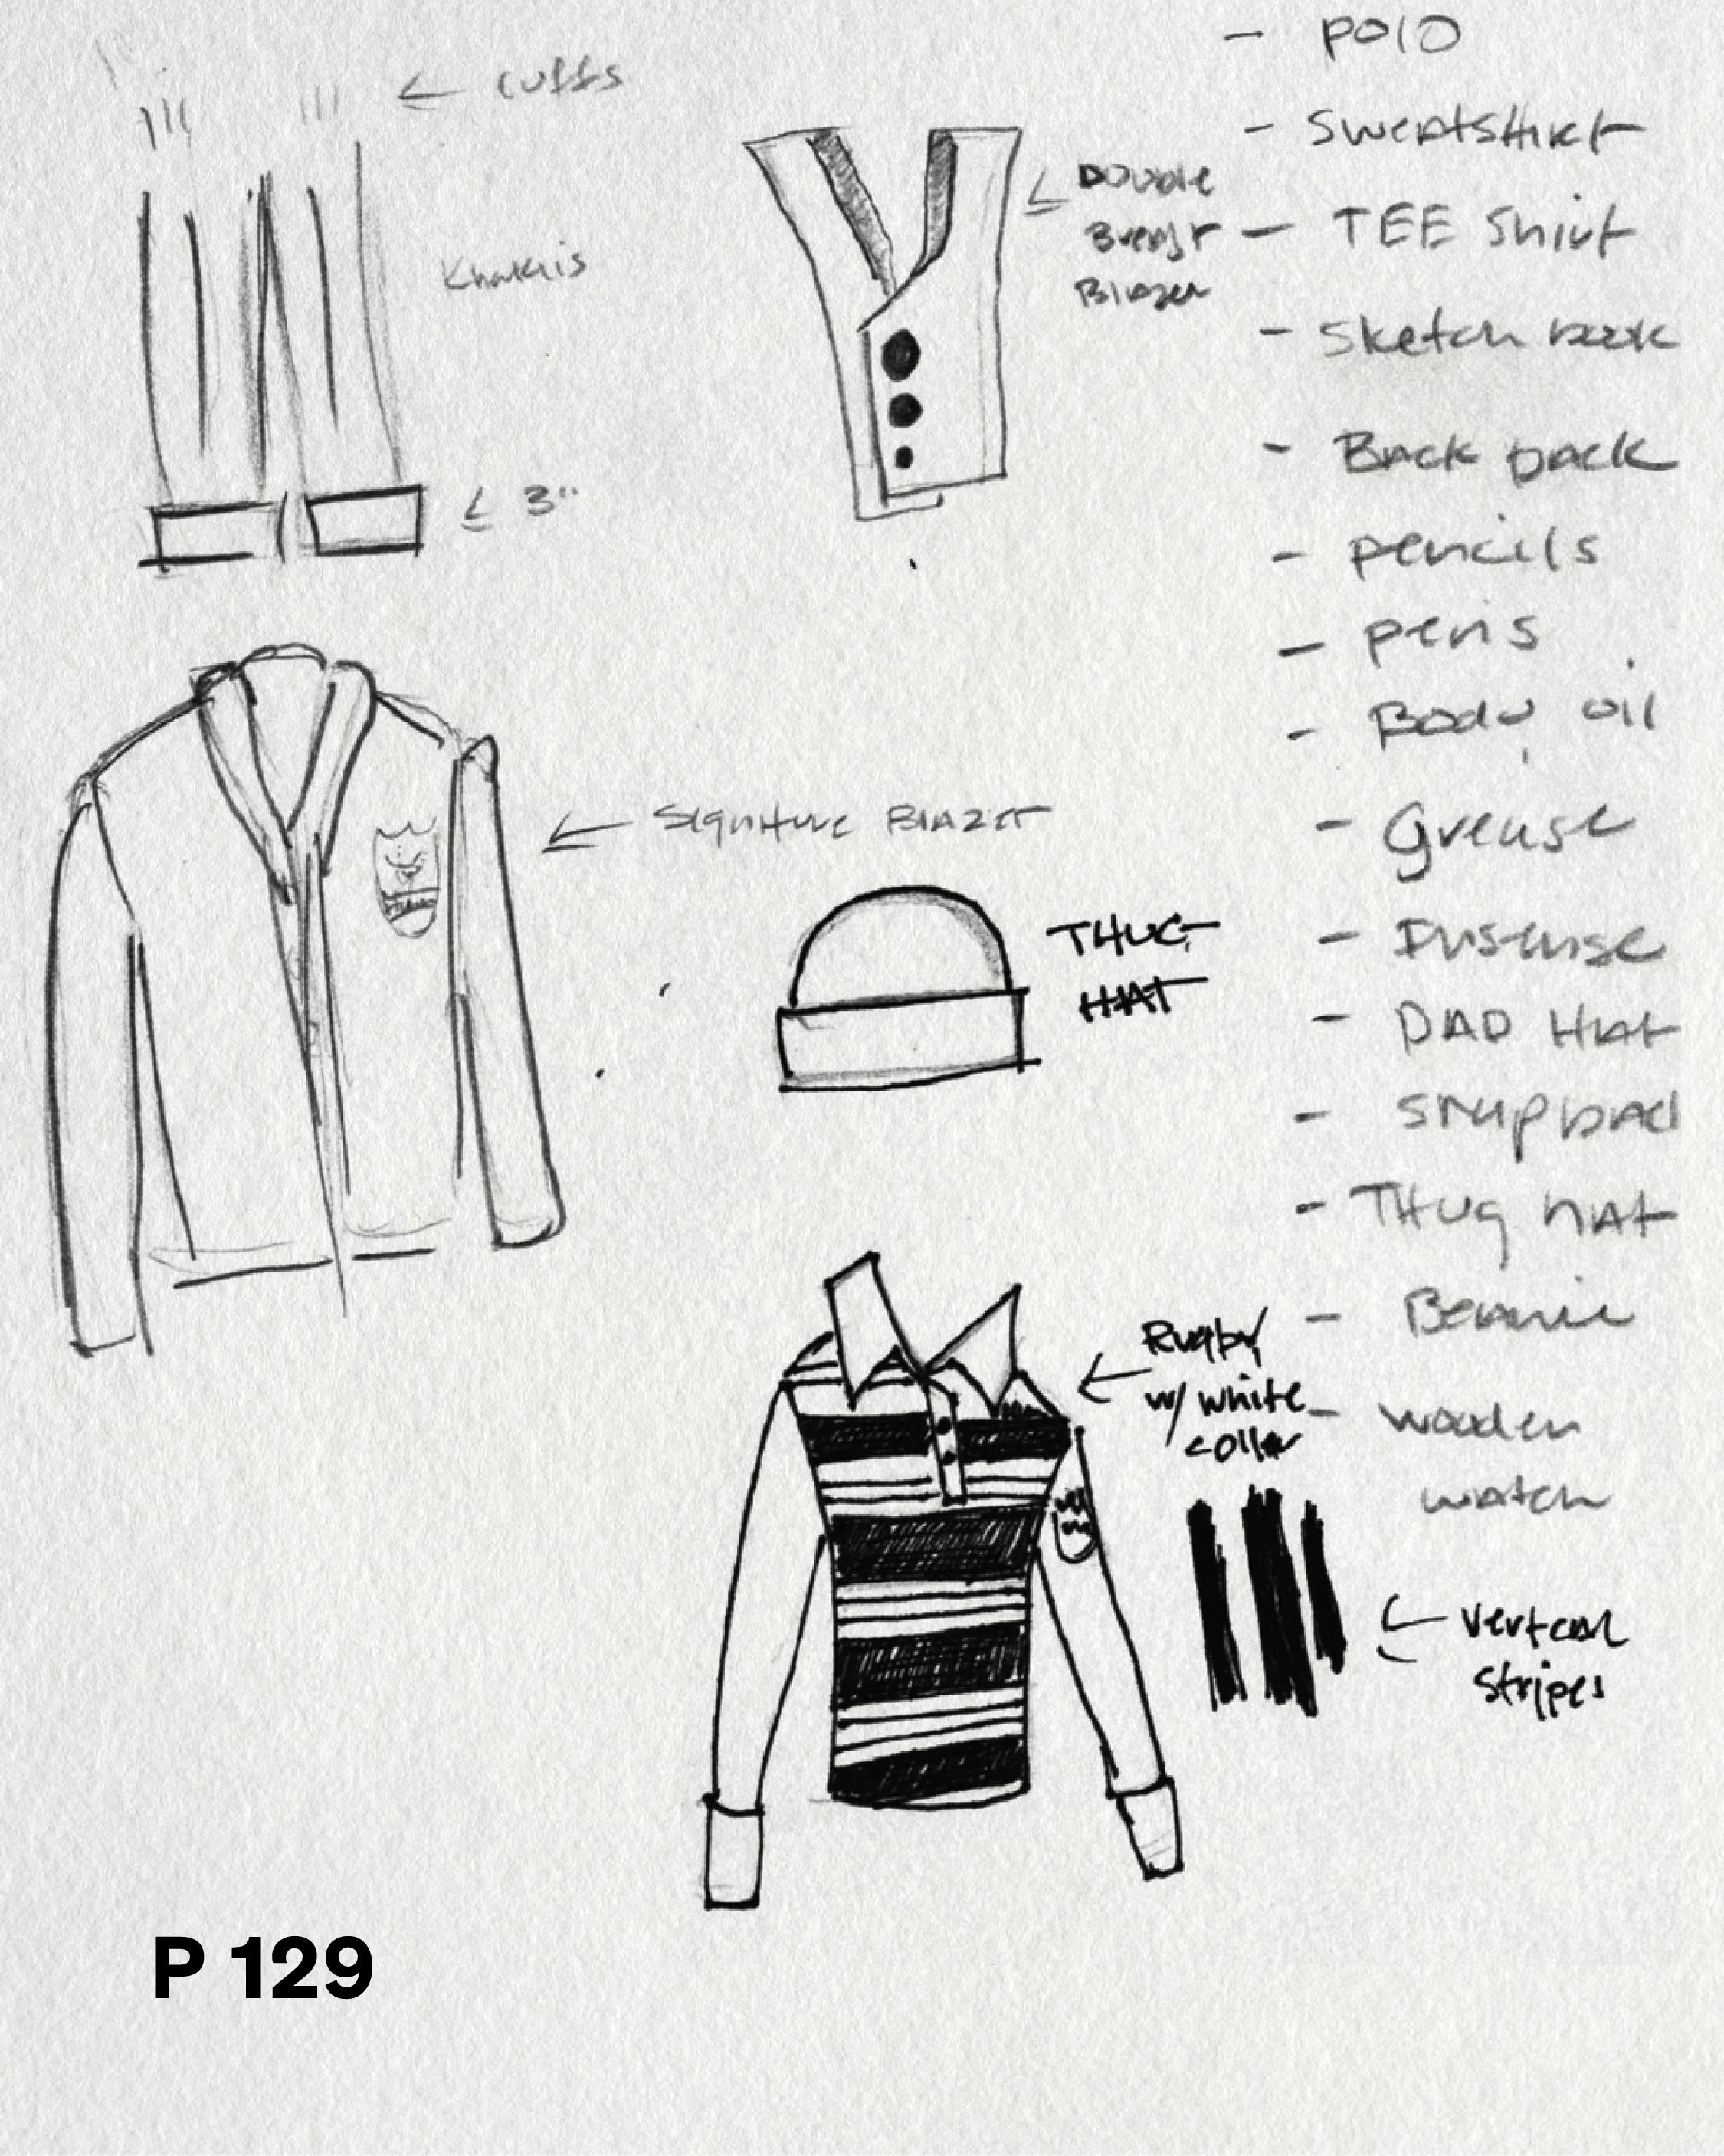 ← cuffs
Khakis
← 3"
← Double
Breast
Blazer
← Signiture Blazer
THUG
HAT
← Rugby
w/ white
coller
← vertical
stripes
- polo
- sweatshirt
- TEE Shirt
- sketch book
- Back pack
- pencils
- pens
- Body oil
- Grease
- DAD HAt
- snapback
- THug hAt
- Beanie
- wooden
watch
P 129